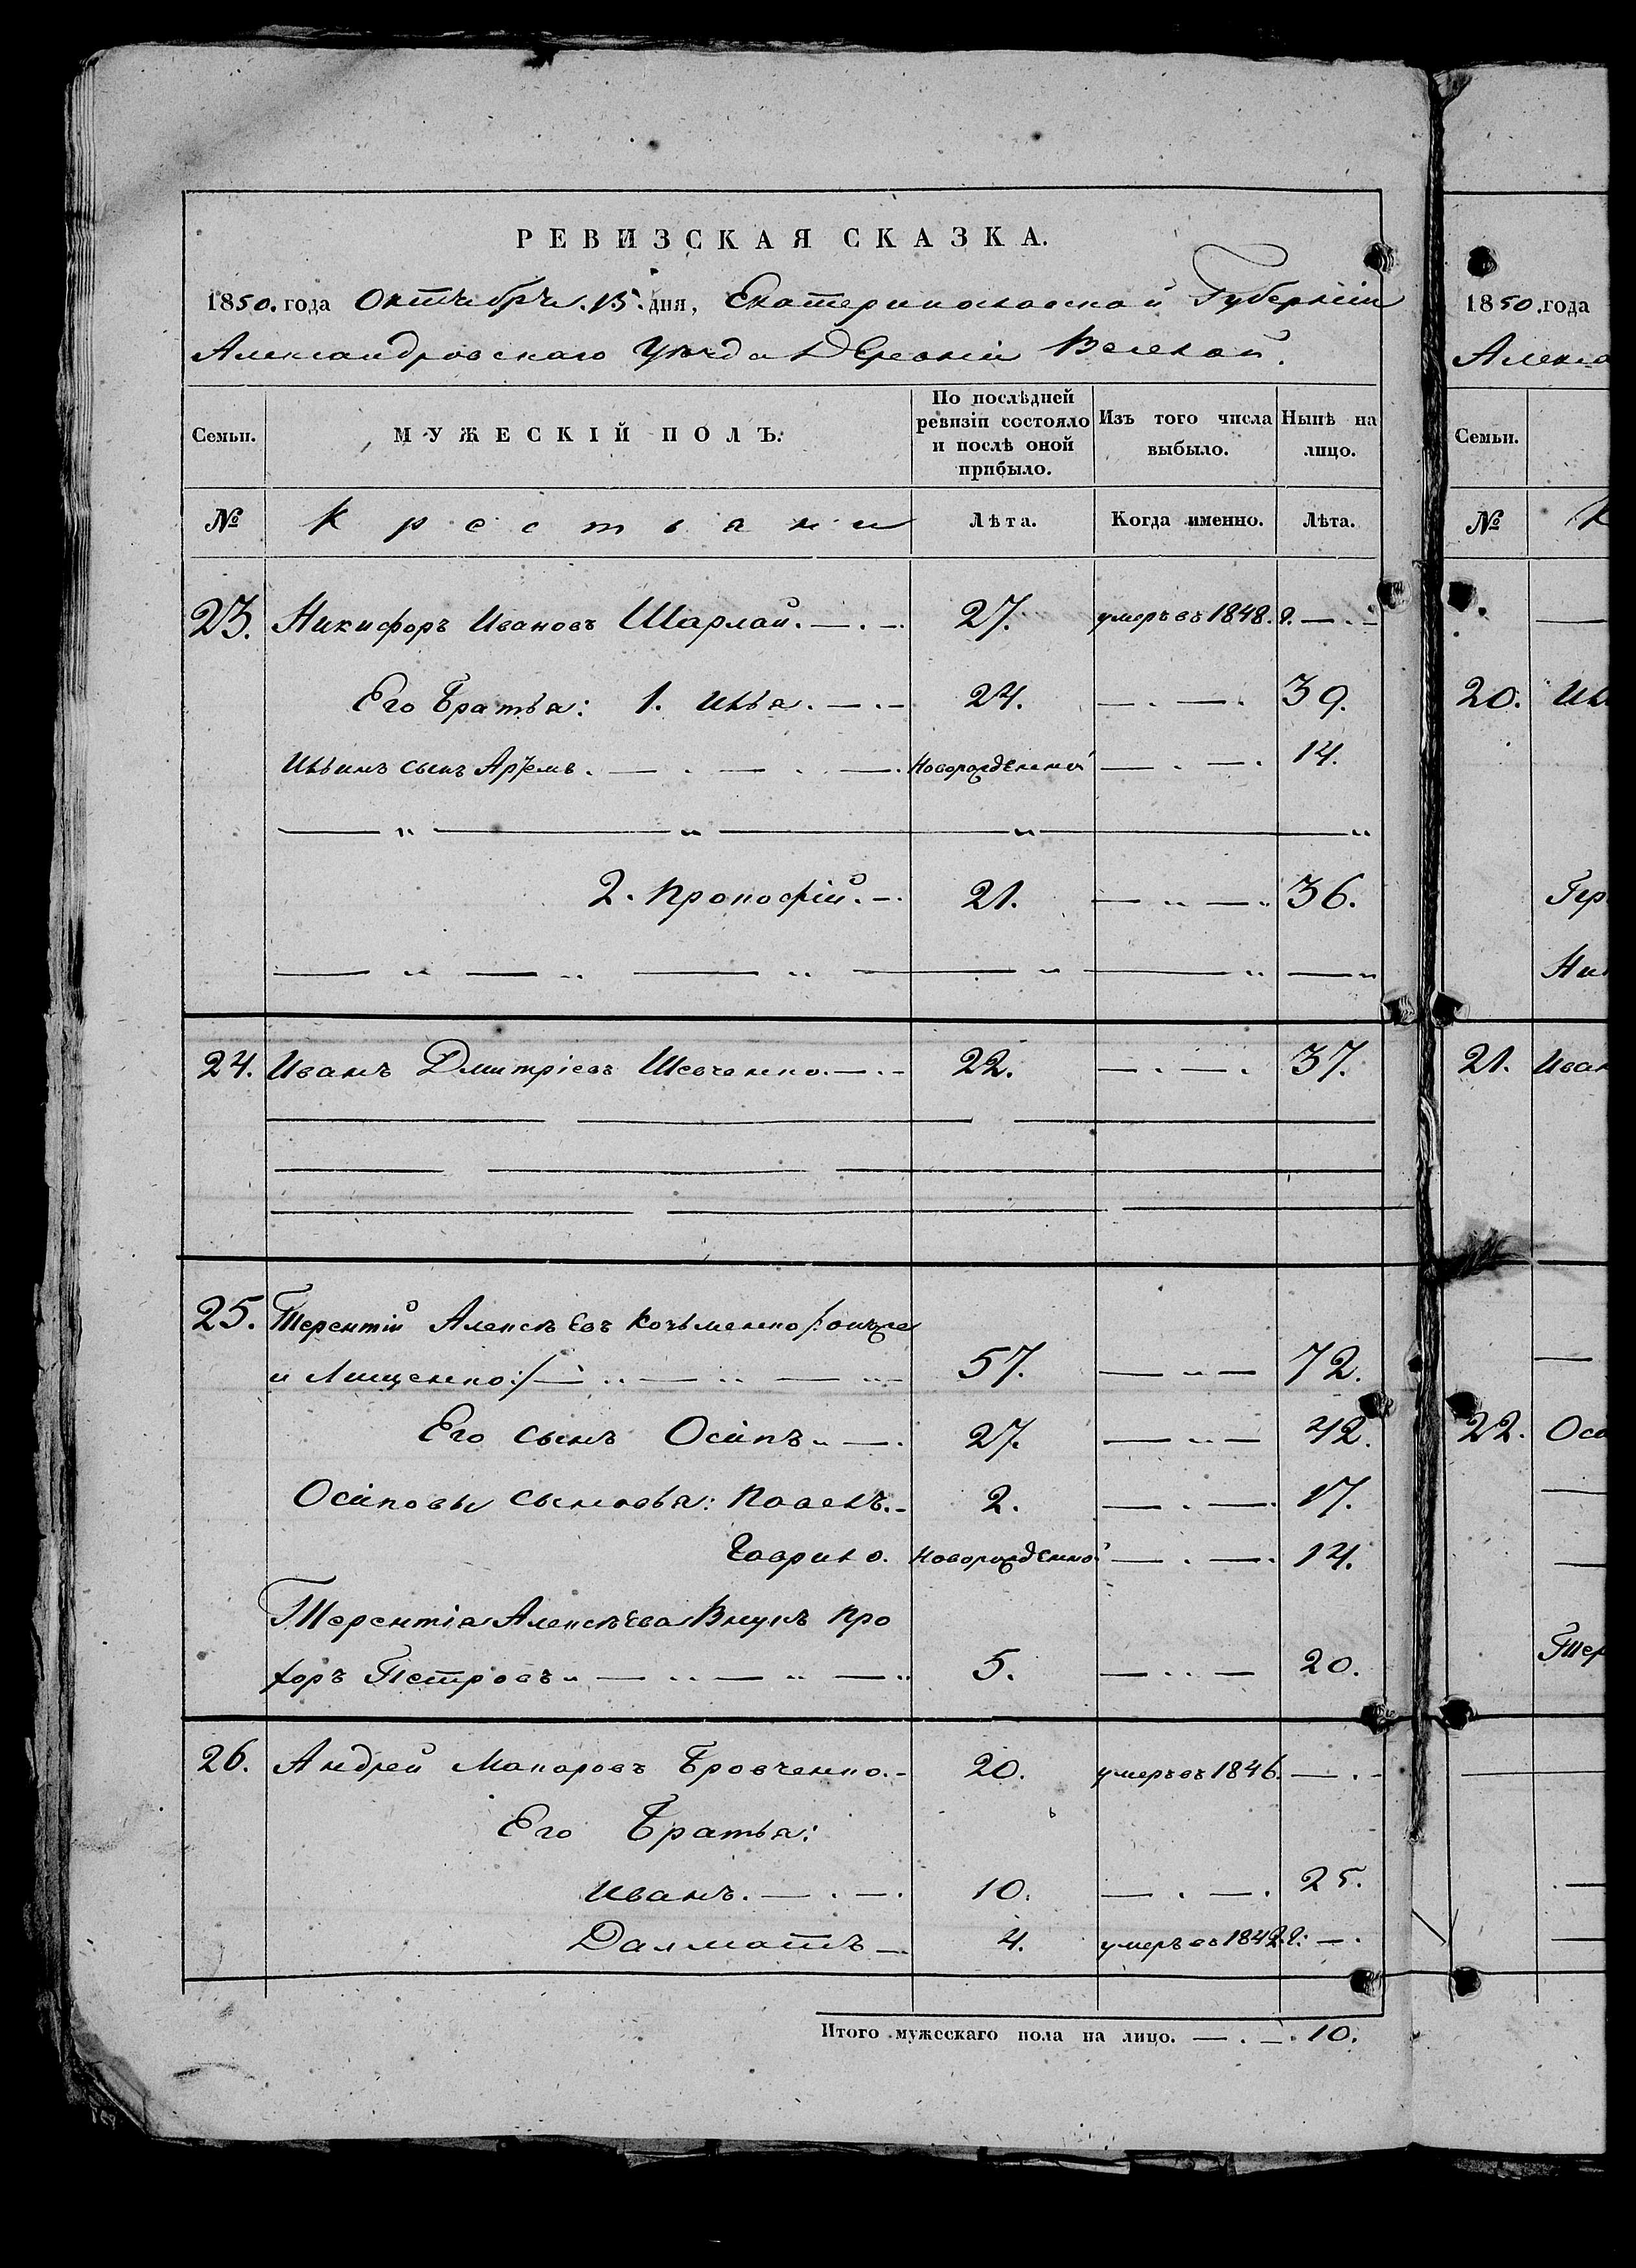 РЕВИЗСКАЯ СКАЗКА.
1850. года Октября. 15. дня, Екатеринославской Губерніи
Александровскаго Уѣзда Деревни Веселой.
Семьи.
МУЖЕСКІЙ ПОЛЪ.
По послѣдней ревизіи состояло и послѣ оной прибыло.
Изъ того числа выбыло.
Нынѣ на лицо.
№ Крестьяни Лѣта. Когда именно. Лѣта.
23. Никифоръ Ивановъ Шарлай. 27. умеръ въ 1848. г.
Его братья: 1. Илья. 24. 39.
Ильинъ сынъ Артемъ. Новорожденный 14.
2. Прокофій. 21. 36.
24. Иванъ Дмитріевъ Шевченко. 22. 37.
25. Терентій Алексѣевъ Козьменко /: онъ же
и Лищенко :/ 57. 72.
Его сынъ Осипъ 27. 42.
Осиповы сыновья: Павелъ. 2. 17.
Гаврило. Новорожденно. 14.
Терентія Алексѣева Внукъ Про
хоръ Петровъ 5. 20.
26. Андрей Макаровъ Бровченко. 20. умеръ въ 1846.
Его Братья:
Иванъ. 10. 25.
Далматъ 4. умеръ въ 1842. г.
Итого мужескаго пола на лицо. 10.
1850. года
Алекса
Семьи.
№ К
20. Ил
Гер
Ник
21. Иван
22. Оси
Тер